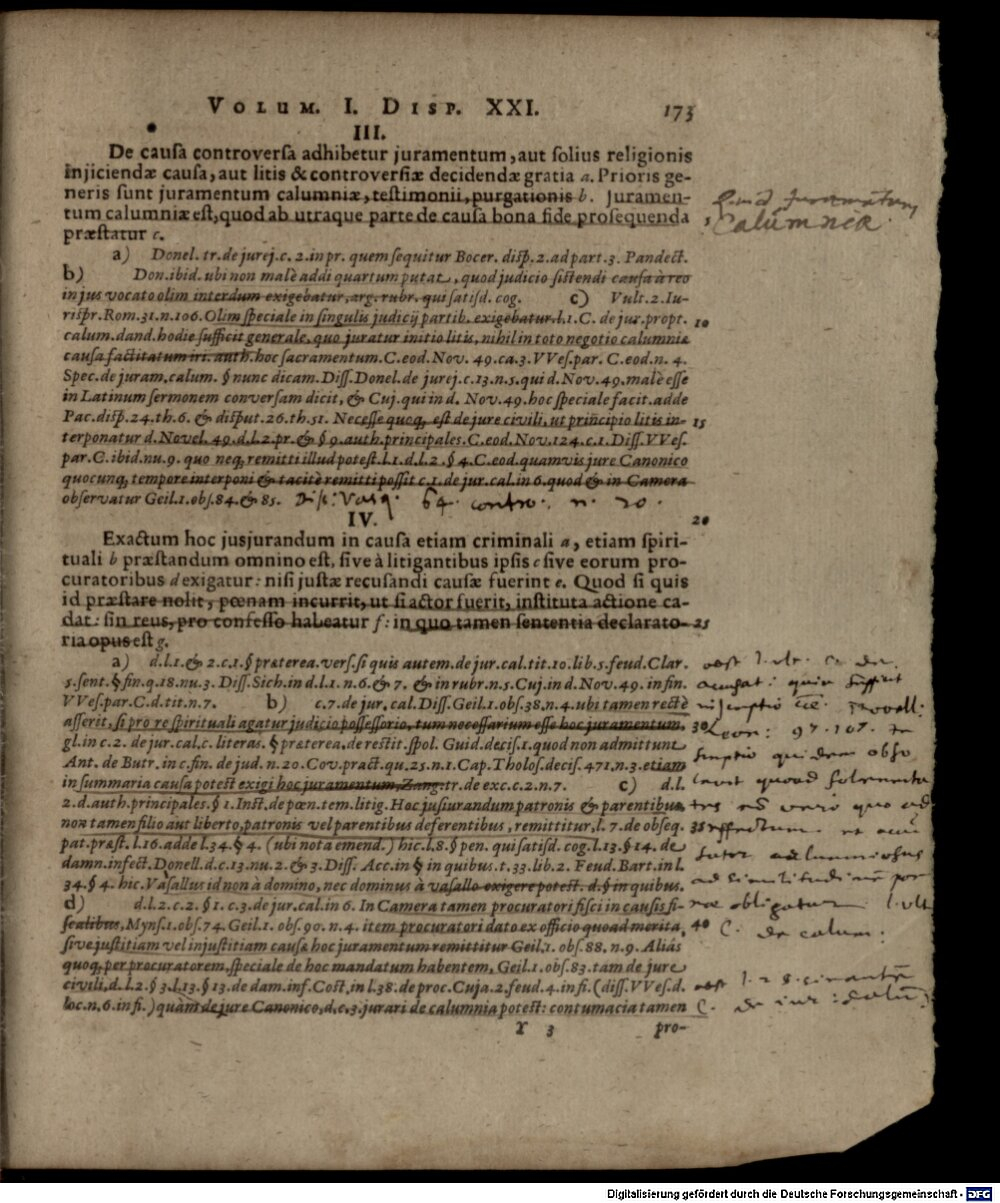 VOLUM. I. DISP. XXI. 173
III.
De cauſa controverſa adhibetur juramentum, aut ſolius religionis
injiciendæ cauſa, aut litis & controverſiæ decidendæ gratia a. Prioris ge-
neris ſunt juramentum calumniæ, teſtimonii, purgationis b. Juramen-
tum calumniæ eſt, quod ab utraque parte de cauſa bona fide proſequenda 5
præſtatur c.
Quid Juramentum
Calumniæ.
a) Donel. tr. de jurej. c. 2. in pr. quem ſequitur Bocer. diſp. 2. ad part. 3. Pandect.
b) Don. ibid. ubi non malè addi quartum putat, quod judicio ſiſtendi cauſa à reo
in jus vocato olim interdum exigebatur, arg. rubr. qui ſatiſd. cog. c) Vult. 2. Iu-
riſpr. Rom. 31. n. 106. Olim ſpeciale in ſingulis judicij partib. exigebatur. l. 1. C. de jur. propt. 10
calum. dand. hodie ſufficit generale, quo juratur initio litis, nihil in toto negotio calumniæ
cauſa factitatum iri. auth. hoc ſacramentum. C. eod. Nov. 49. ca. 3. VVeſ. par. C. eod. n. 4.
Spec. de juram. calum. § nunc dicam. Diſſ. Donel. de jurej. c. 13. n. 5. qui d. Nov. 49. malè eſſe
in Latinum ſermonem converſam dicit, & Cuj. qui in d. Nov. 49. hoc ſpeciale facit. adde
Pac. diſp. 24. th. 6. & diſput. 26. th. 51. Neceſſe queq, eſt de jure civili, ut principio litis in- 15
terponatur d. Novel. 49. d. l. 2. pr. & § 9. auth. principales. C. eod. Nov. 124. c. 1. Diſſ. VVeſ.
par. C. ibid. nu. 9. quo neq, remitti illud poteſt. l. 1. d. l. 2. § 4. C. eod. quamvis jure Canonico
quocunq, tempore interponi & tacitè remitti poſſit c. 1. de jur. cal. in 6. quod & in Camera
obſervatur Geil. 1. obſ. 84. & 85. Diſ: Vasq. 64. contro. n. 20.
IV. 20
Exactum hoc jusjurandum in cauſa etiam criminali a, etiam ſpiri-
tuali b præſtandum omnino eſt, ſive à litigantibus ipſis c ſive eorum pro-
curatoribus d exigatur: niſi juſtæ recuſandi cauſæ fuerint e. Quod ſi quis
id præſtare nolit, pœnam incurrit, ut ſi actor fuerit, inſtituta actione ca-
dat: ſin reus, pro confeſſo habeatur f: in quo tamen ſententia declarato- 25
ria opus eſt g.
a) d. l. 1. & 2. c. 1. § præterea. verſ. ſi quis autem. de jur. cal. tit. 10. lib. 5. feud. Clar.
5. ſent. § fin. q. 18. nu. 3. Diſſ. Sich. in d. l. 1. n. 6. & 7. & in rubr. n. 5. Cuj. in d. Nov. 49. in fin.
VVeſ. par. C. d. tit. n. 7. b) c. 7. de jur. cal. Diſſ. Geil. 1. obſ. 38. n. 4. ubi tamen rectè
aſſerit, ſi pro re ſpirituali agatur judicio poſſeſſorio, tum neceſſarium eſſe hoc juramentum, 30
gl. in c. 2. de jur. cal. c. literas. § præterea. de reſtit. ſpol. Guid. deciſ. 1. quod non admittunt
Ant. de Butr. in c. fin. de jud. n. 20. Cov. pract. qu. 25. n. 1. Cap. Tholoſ. deciſ. 471. n. 3. etiam
in ſummaria cauſa poteſt exigi hoc juramentum, Zang. tr. de exc. c. 2. n. 7. c) d. l.
2. d. auth. principales. § 1. Inſt. de pœn. tem. litig. Hoc juſiurandum patronis & parentibus,
non tamen filio aut liberto, patronis vel parentibus deferentibus, remittitur, l. 7. de obſeq. 35
pat. præſt. l. 16. adde l. 34. § 4. (ubi nota emend.) hic. l. 8. § pen. qui ſatiſd. cog. l. 13. § 14. de
damn. infect. Donell. d. c. 13. nu. 2. & 3. Diſſ. Acc. in § in quibus. t. 33. lib. 2. Feud. Bart. in l.
34. § 4. hic. Vaſallus id non à domino, nec dominus à vaſallo exigere poteſt. d. § in quibus.
d) d. l. 2. c. 2. § 1. c. 3. de jur. cal. in 6. In Camera tamen procuratori fiſci in cauſis fi-
ſcalibus, Mynſ. 1. obſ. 74. Geil. 1. obſ. 90. n. 4. item procuratori dato ex officio quoad merita, 40
ſive juſtitiam vel injuſtitiam cauſæ hoc juramentum remittitur Geil. 1. obſ. 88. n. 9. Aliàs
quoq, per procuratorem, ſpeciale de hoc mandatum habentem, Geil. 1. obſ. 83. tam de jure
civili, d. l. 2. § 3. l. 13. § 13. de dam. inf. Coſt. in l. 38. de proc. Cuja. 2. feud. 4. in fi. (diſſ. VVeſ. d.
loc. n. 6. in fi.) quàm de jure Canonico, d. c. 3. jurari de calumnia poteſt: contumacia tamen
Y 3 pro-
obligatur l. ult
C. de calum:
C. de iur: calum
Digitalisierung gefördert durch die Deutsche Forschungsgemeinschaft - DFG